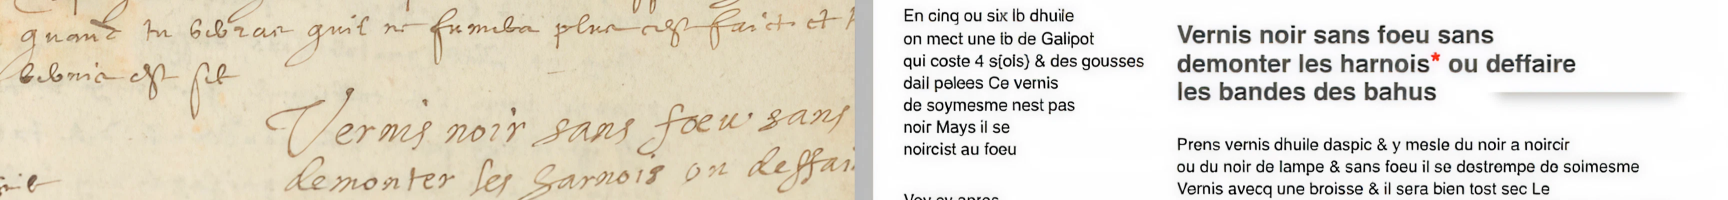 quant tu verras quil ne fumera plus cest faict et
vernis est sec
Vernis noir sans foeu sans
demonter les harnois ou deffai
En cinq ou six lb dhuile
on mect une lb de Galipot
qui coste 4 s{ols} & des gousses
dail pelees Ce vernis
de soymesme nest pas
noir Mays il se
noircist au foeu
Voy cy apres
Vernis noir sans foeu sans
demonter les harnois* ou deffaire
les bandes des bahus
Prens vernis dhuile daspic & y mesle du noir a noircir
ou du noir de lampe & sans foeu il se destrempe de soimesme
Vernis avecq une broisse & il sera bien tost sec Le